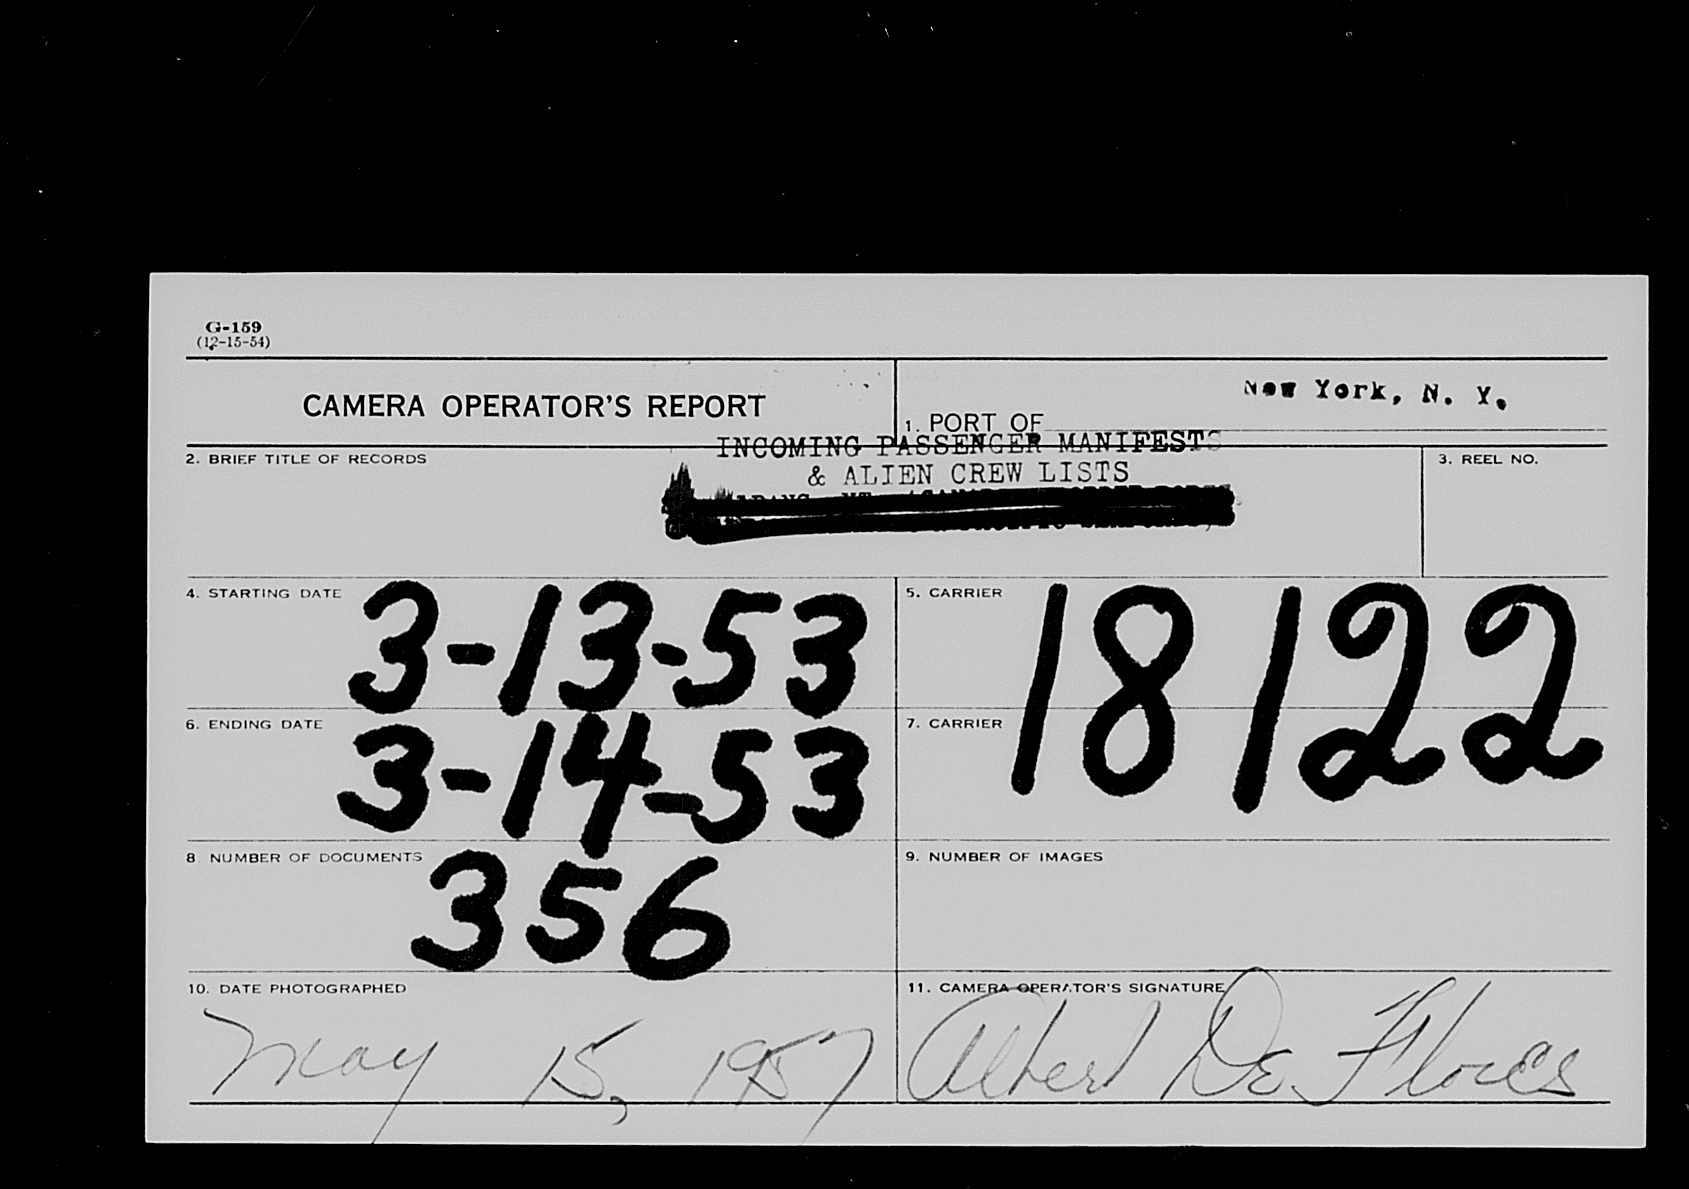 G-159
(12-15-54)
CAMERA OPERATOR'S REPORT
New York, N. Y.
1. PORT OF
INCOMING PASSENGER MANIFESTS
2. BRIEF TITLE OF RECORDS
3. REEL NO.
& ALIEN CREW LISTS
4. STARTING DATE 3-13-53
5. CARRIER 18122
6. ENDING DATE 3-14-53
7. CARRIER
8 NUMBER OF DOCUMENTS 356
9. NUMBER OF IMAGES
10. DATE PHOTOGRAPHED
11. CAMERA OPERATOR'S SIGNATURE
May 15, 1957
Albert De Flores